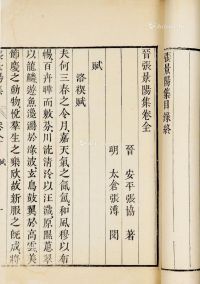 張景陽集目錄終
晉張景陽集卷全
晉 安平張協 著
明 太倉張溥 閱
賦
洛禊賦
夫何三春之令月嘉天氣之氤氳和風穆以布
暢百卉曄而敷芬川流清泠以汪濊原隰蔥翠
以龍鱗遊魚瀺灂於淥波玄鳥鼓翼於高雲美
節慶之動物悅羣生之樂欣故新服之既成將
卷全 賦